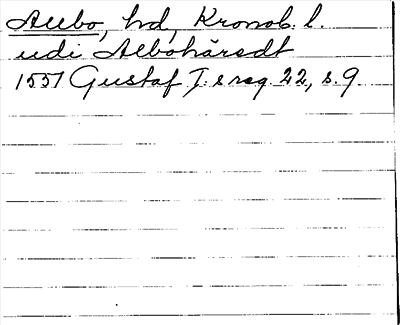 Allbo, hd, Kronob. l.
udi Albohäradt
1551 Gustaf I:s reg. 22, s. 9